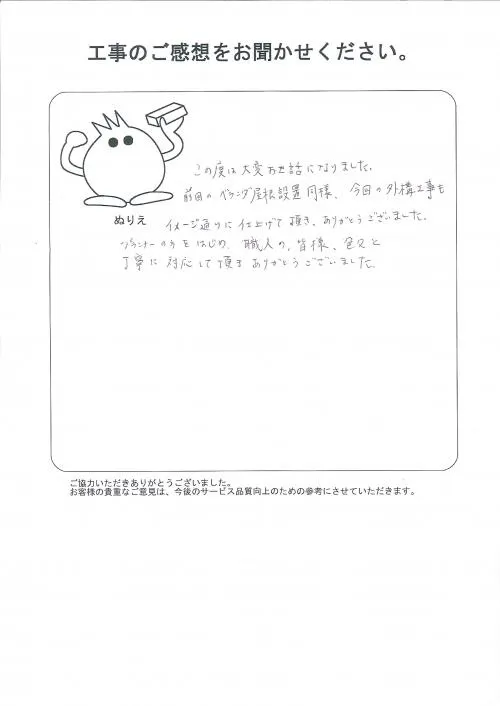 工事のご感想をお聞かせください。
この度は大変お世話になりました。
前回のベランダ屋根設置同様、今回の外構工事も
ぬりえ
イメージ通りに仕上げて頂き、ありがとうございました。
プランナーの方をはじめ、職人の、皆様、色々と
丁寧に対応して頂きありがとうございました
ご協力いただきありがとうございました。
お客様の貴重なご意見は、今後のサービス品質向上のための参考にさせていただきます。